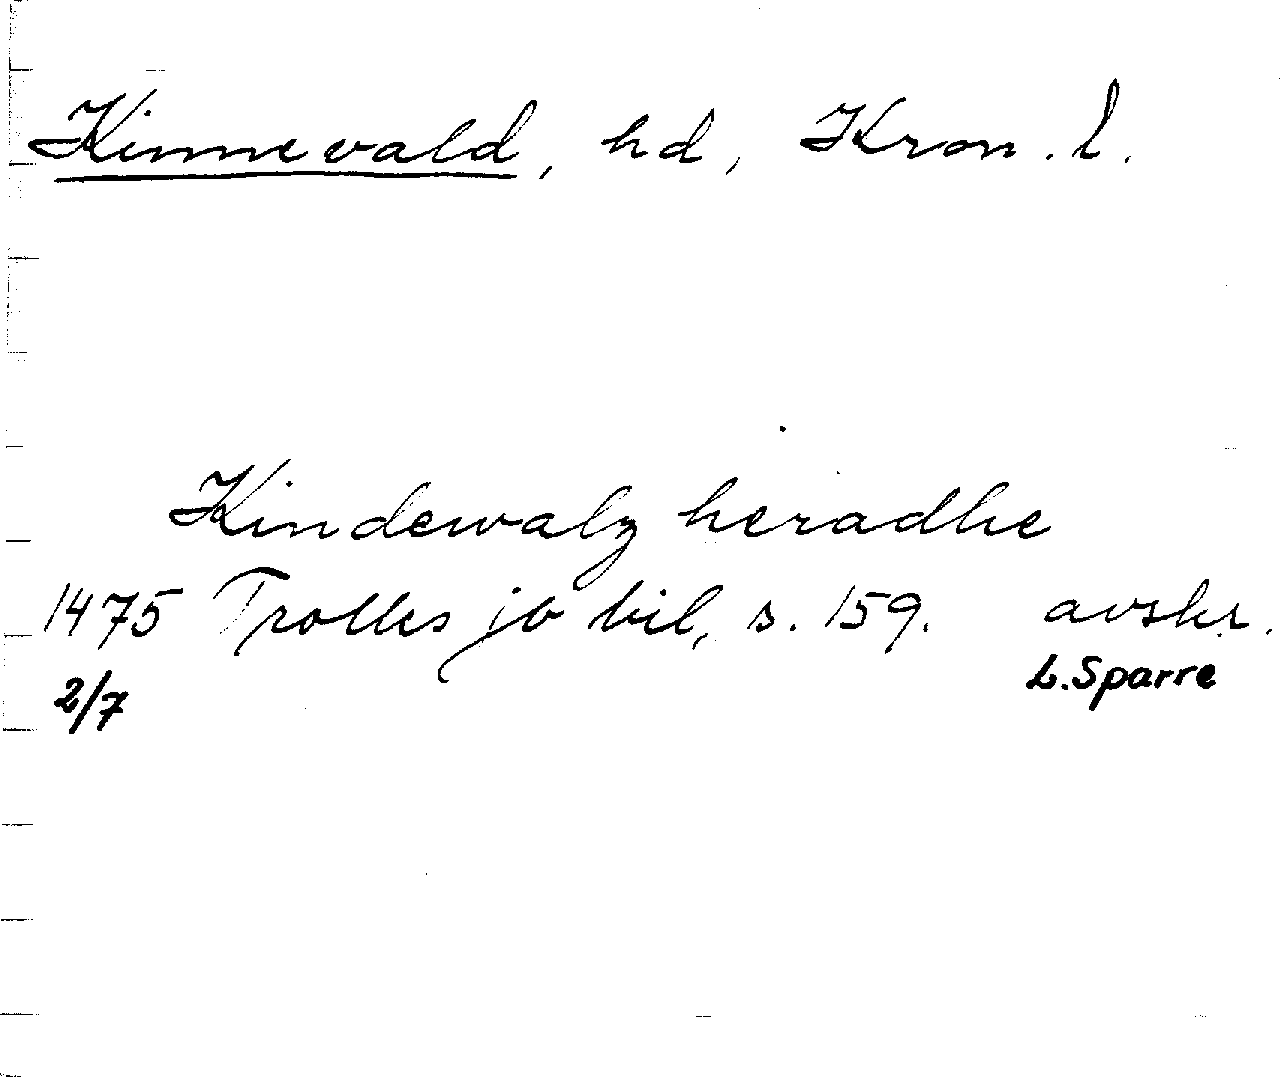 Kinnevald, hd, Kron. l.
Kindewalz heradhe
1475 Trolles jb bil, s. 159. avskr.
2/7 L. Sparre